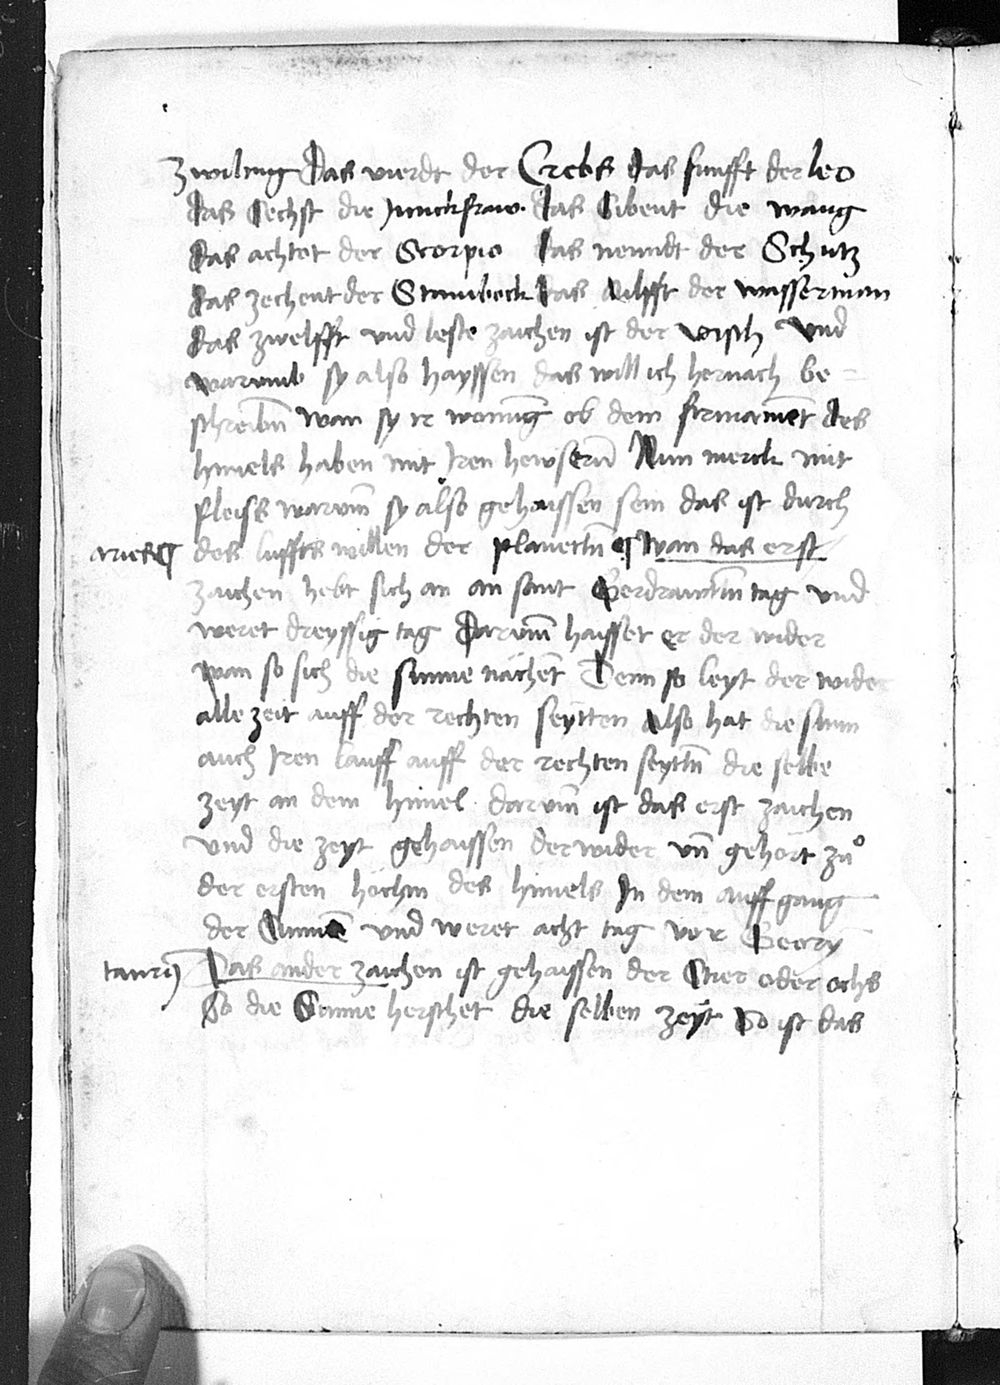 zwiling Das vierdt der Crebs das funfft der leo
das Sechst die Junckfraw. das Sibent die waug
das achtet der Scorpio das neundt der Schutz
das zechent der Stainbock das ailfft der wasserman
das zwelfft vnd leste zaichen ist der visch Vnd
warumb sy also hayssen das will ich hernach be=
schreibn̄ wan sy ir wonūg ob dem firmamēt des
himels haben mit Iren hewsern̄ Nun merck mit
fleiss warum̄ sy also gehaissen sein das ist durch
aries des luffts willen der planettn̄ ¶ Wan das erst
zaichen hebt sich an an sant Gerdrawttn̄ tag vnd
weret dreyssig tag Darum̄ haisset er der wider
wan so sich die sunne nächet Denn so leyt der wider
alle zeit auff der rechten seytten Also hat die sunn
auch Iren lauff auff der rechten seyttn̄ die selbe
zeyt an dem himel darum̄ ist das erst zaichen
vnd die zeyt gehaissen der wider vn̄ gehört zů
der ersten höchin des himels In dem auffgang
der Sunnē vnd weret acht tag vor Geory
taurus Das ander zaichen ist gehaissen der Stier oder ochs
So die Sunne herschet die selben zeyt So ist das